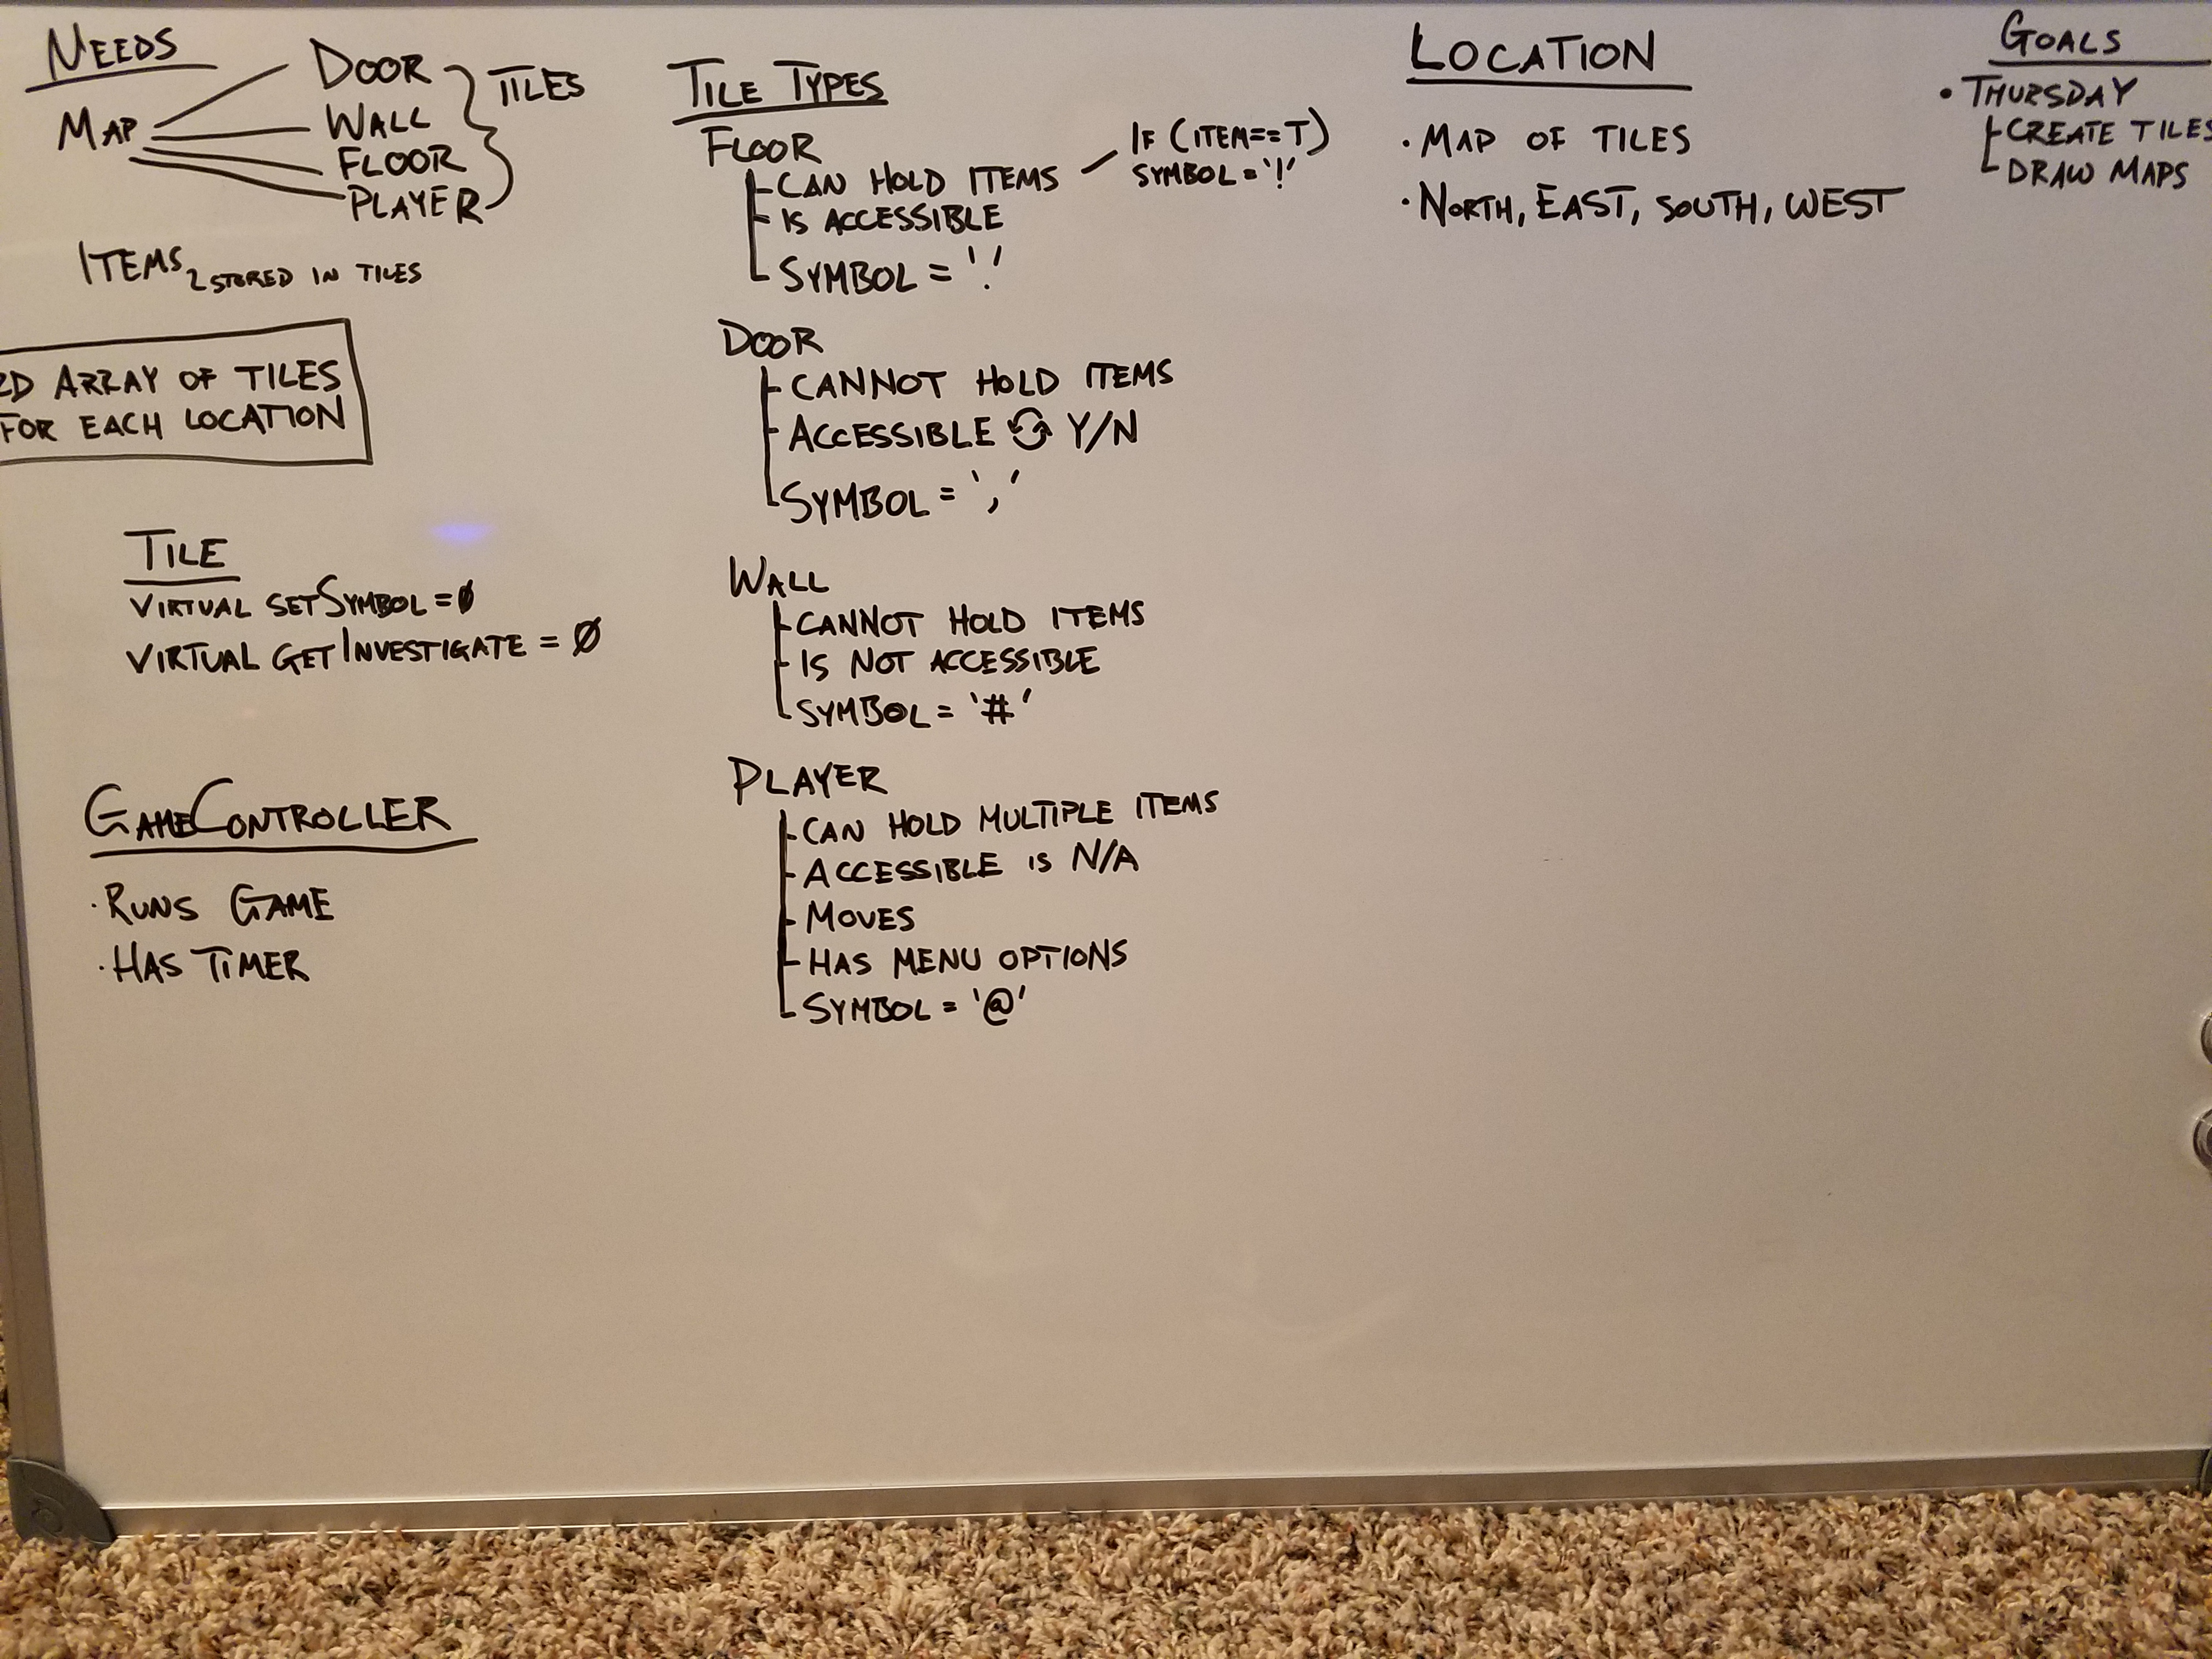 NEEDS
MAP
DOOR
WALL
FLOOR
PLAYER
TILES
ITEMS
STORED IN TILES
2D ARRAY OF TILES
FOR EACH LOCATION
TILE
VIRTUAL SETSYMBOL = 0
VIRTUAL GETINVESTIGATE = 0
GAMECONTROLLER
· RUNS GAME
· HAS TIMER
TILE TYPES
FLOOR
CAN HOLD ITEMS
IF (ITEM==T)
SYMBOL = '!'
IS ACCESSIBLE
SYMBOL = '.'
DOOR
CANNOT HOLD ITEMS
ACCESSIBLE Y/N
SYMBOL = ','
WALL
CANNOT HOLD ITEMS
IS NOT ACCESSIBLE
SYMBOL = '#'
PLAYER
CAN HOLD MULTIPLE ITEMS
ACCESSIBLE IS N/A
MOVES
HAS MENU OPTIONS
SYMBOL = '@'
LOCATION
· MAP OF TILES
· NORTH, EAST, SOUTH, WEST
GOALS
• THURSDAY
CREATE TILES
DRAW MAPS